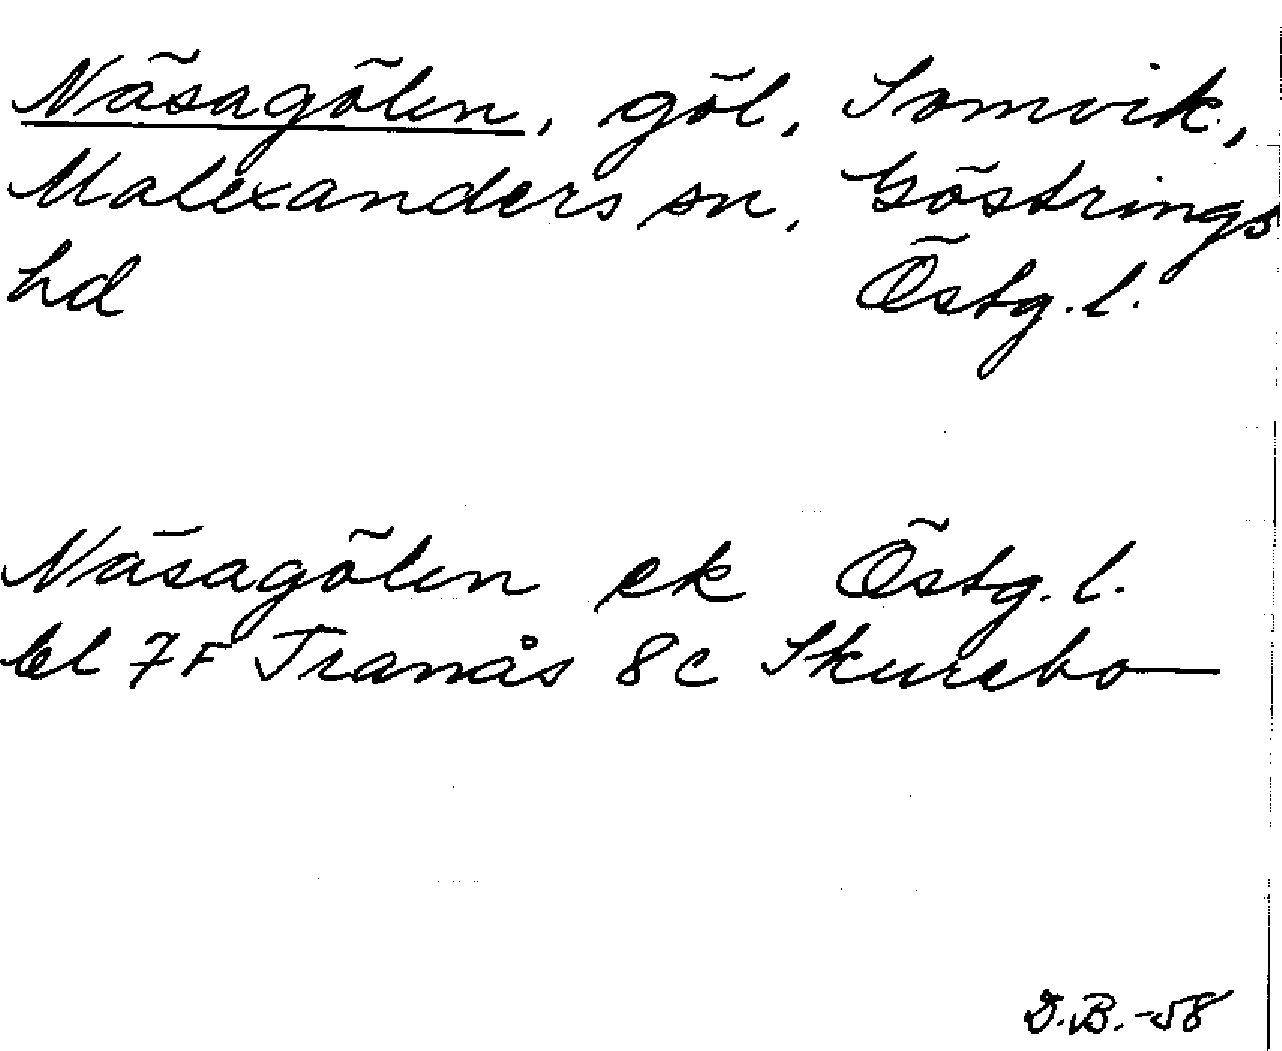 Näsagölen, göl, Somvik,
Malexanders sn, Göstrings
hd Östg. l.
Näsagölen ek Östg. l.
bl 7F Tranås 8c Skurebo
D.B. -58